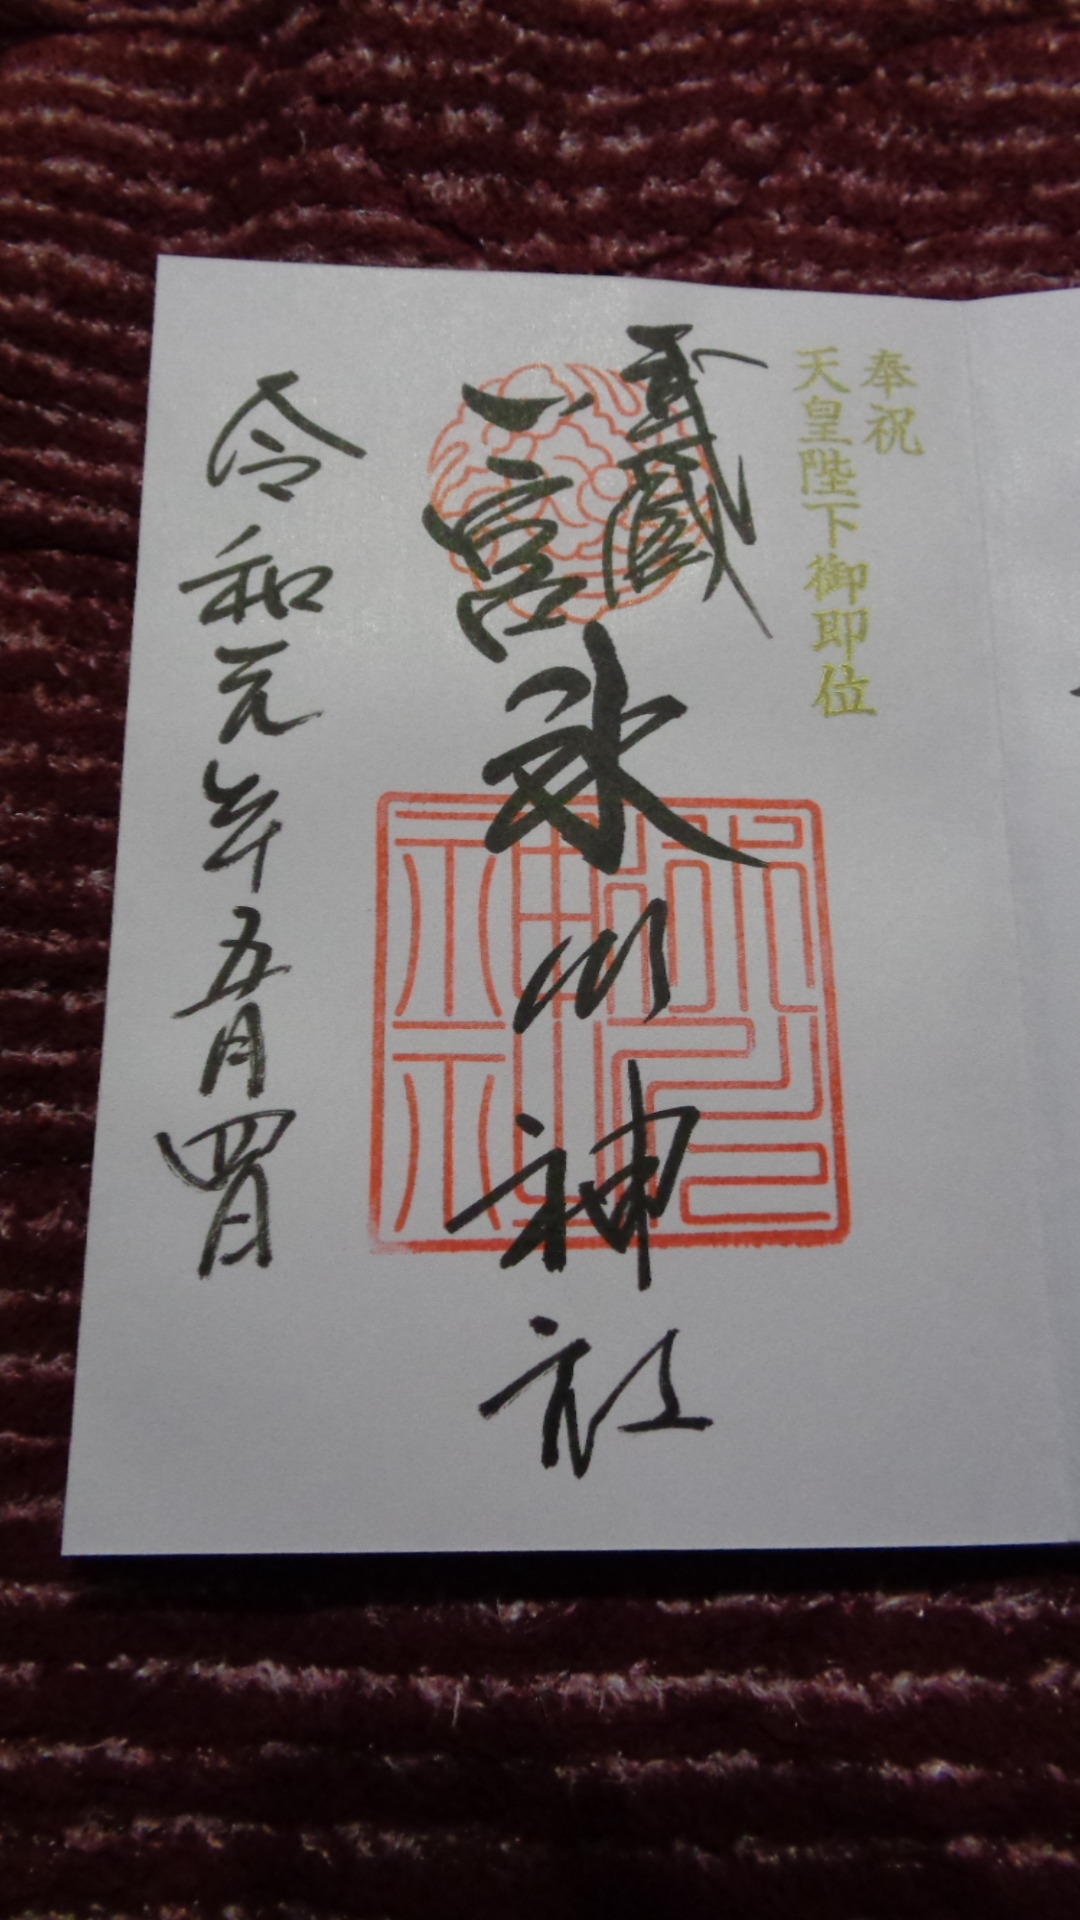 奉祝
天皇陛下御即位
武蔵
一宮
氷川神社
氷川神社
令和元年五月四日